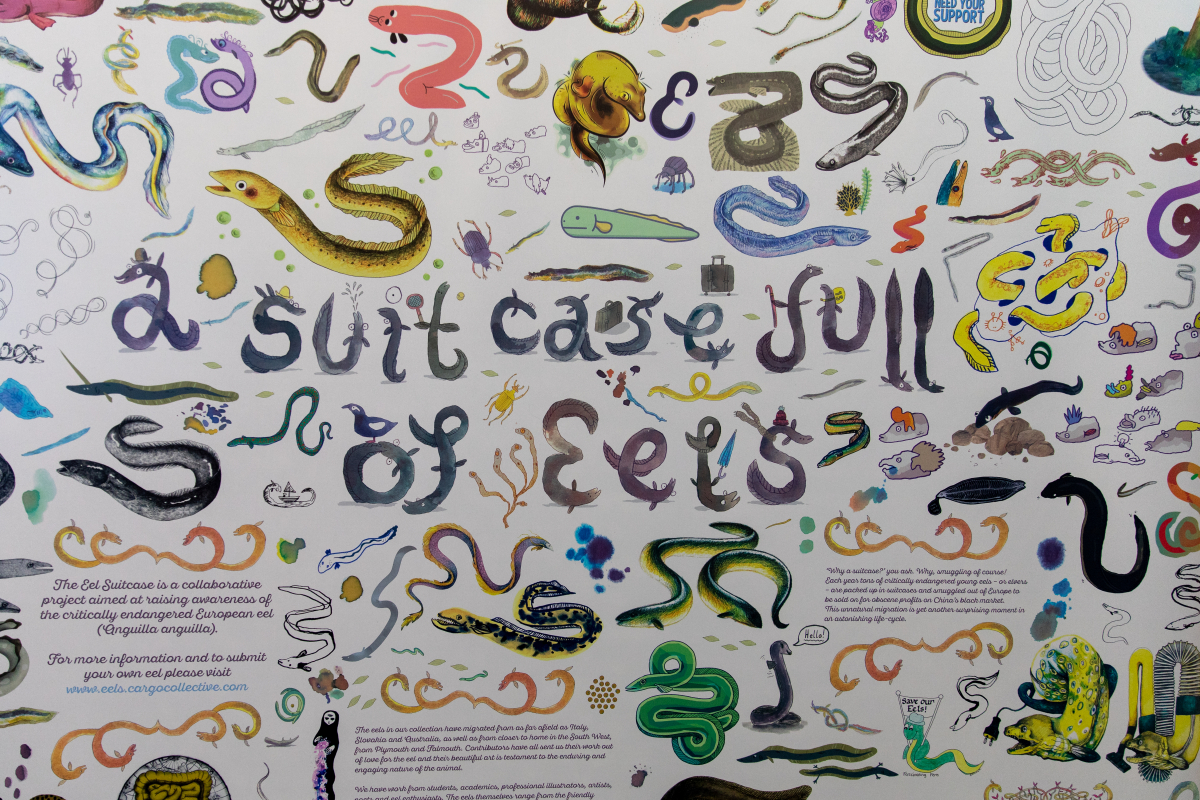 NEED YOUR
SUPPORT
eel
a suitcase full
of Eels
The Eel Suitcase is a collaborative
project aimed at raising awareness of
the critically endangered European eel
(Anguilla anguilla).
For more information and to submit
your own eel please visit
www.eels.cargocollective.com
"Why a suitcase?" you ask. Why, smuggling of course!
Each year tons of critically endangered young eels - or elvers
- are packed up in suitcases and smuggled out of Europe to
be sold on for obscene profits on China's black market.
This unnatural migration is yet another surprising moment in
an astonishing life-cycle.
Hello!
Save our
Eels!
The eels in our collection have migrated from as far afield as Italy,
Slovakia and Australia, as well as from closer to home in the South West,
from Plymouth and Falmouth. Contributors have all sent us their work out
of love for the eel and their beautiful art is testament to the enduring and
engaging nature of the animal.
We have work from students, academics, professional illustrators, artists,
poets and eel enthusiasts. The eels themselves range from the friendly